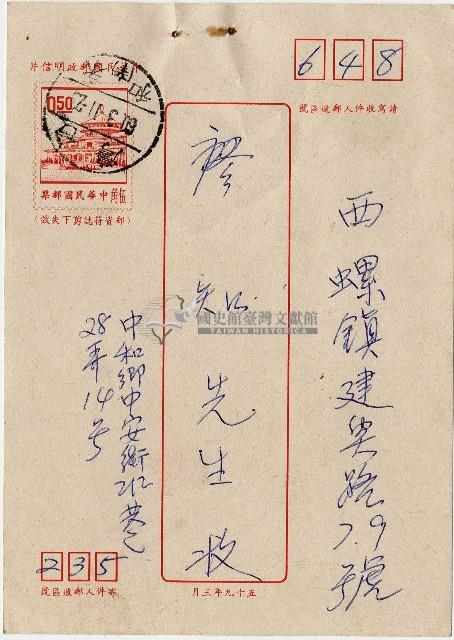 中華民國郵政明信片
648
請寫收件人郵遞區號
0.50
伍角 中華民國郵票
(郵資符誌剪下失效)
西螺鎮建興路79號
廖 先生 收
國史館臺灣文獻館
TAIWAN HISTORICA
中和鄉中安街212巷
28弄14号
235
寄件人郵遞區號
五十九年三月